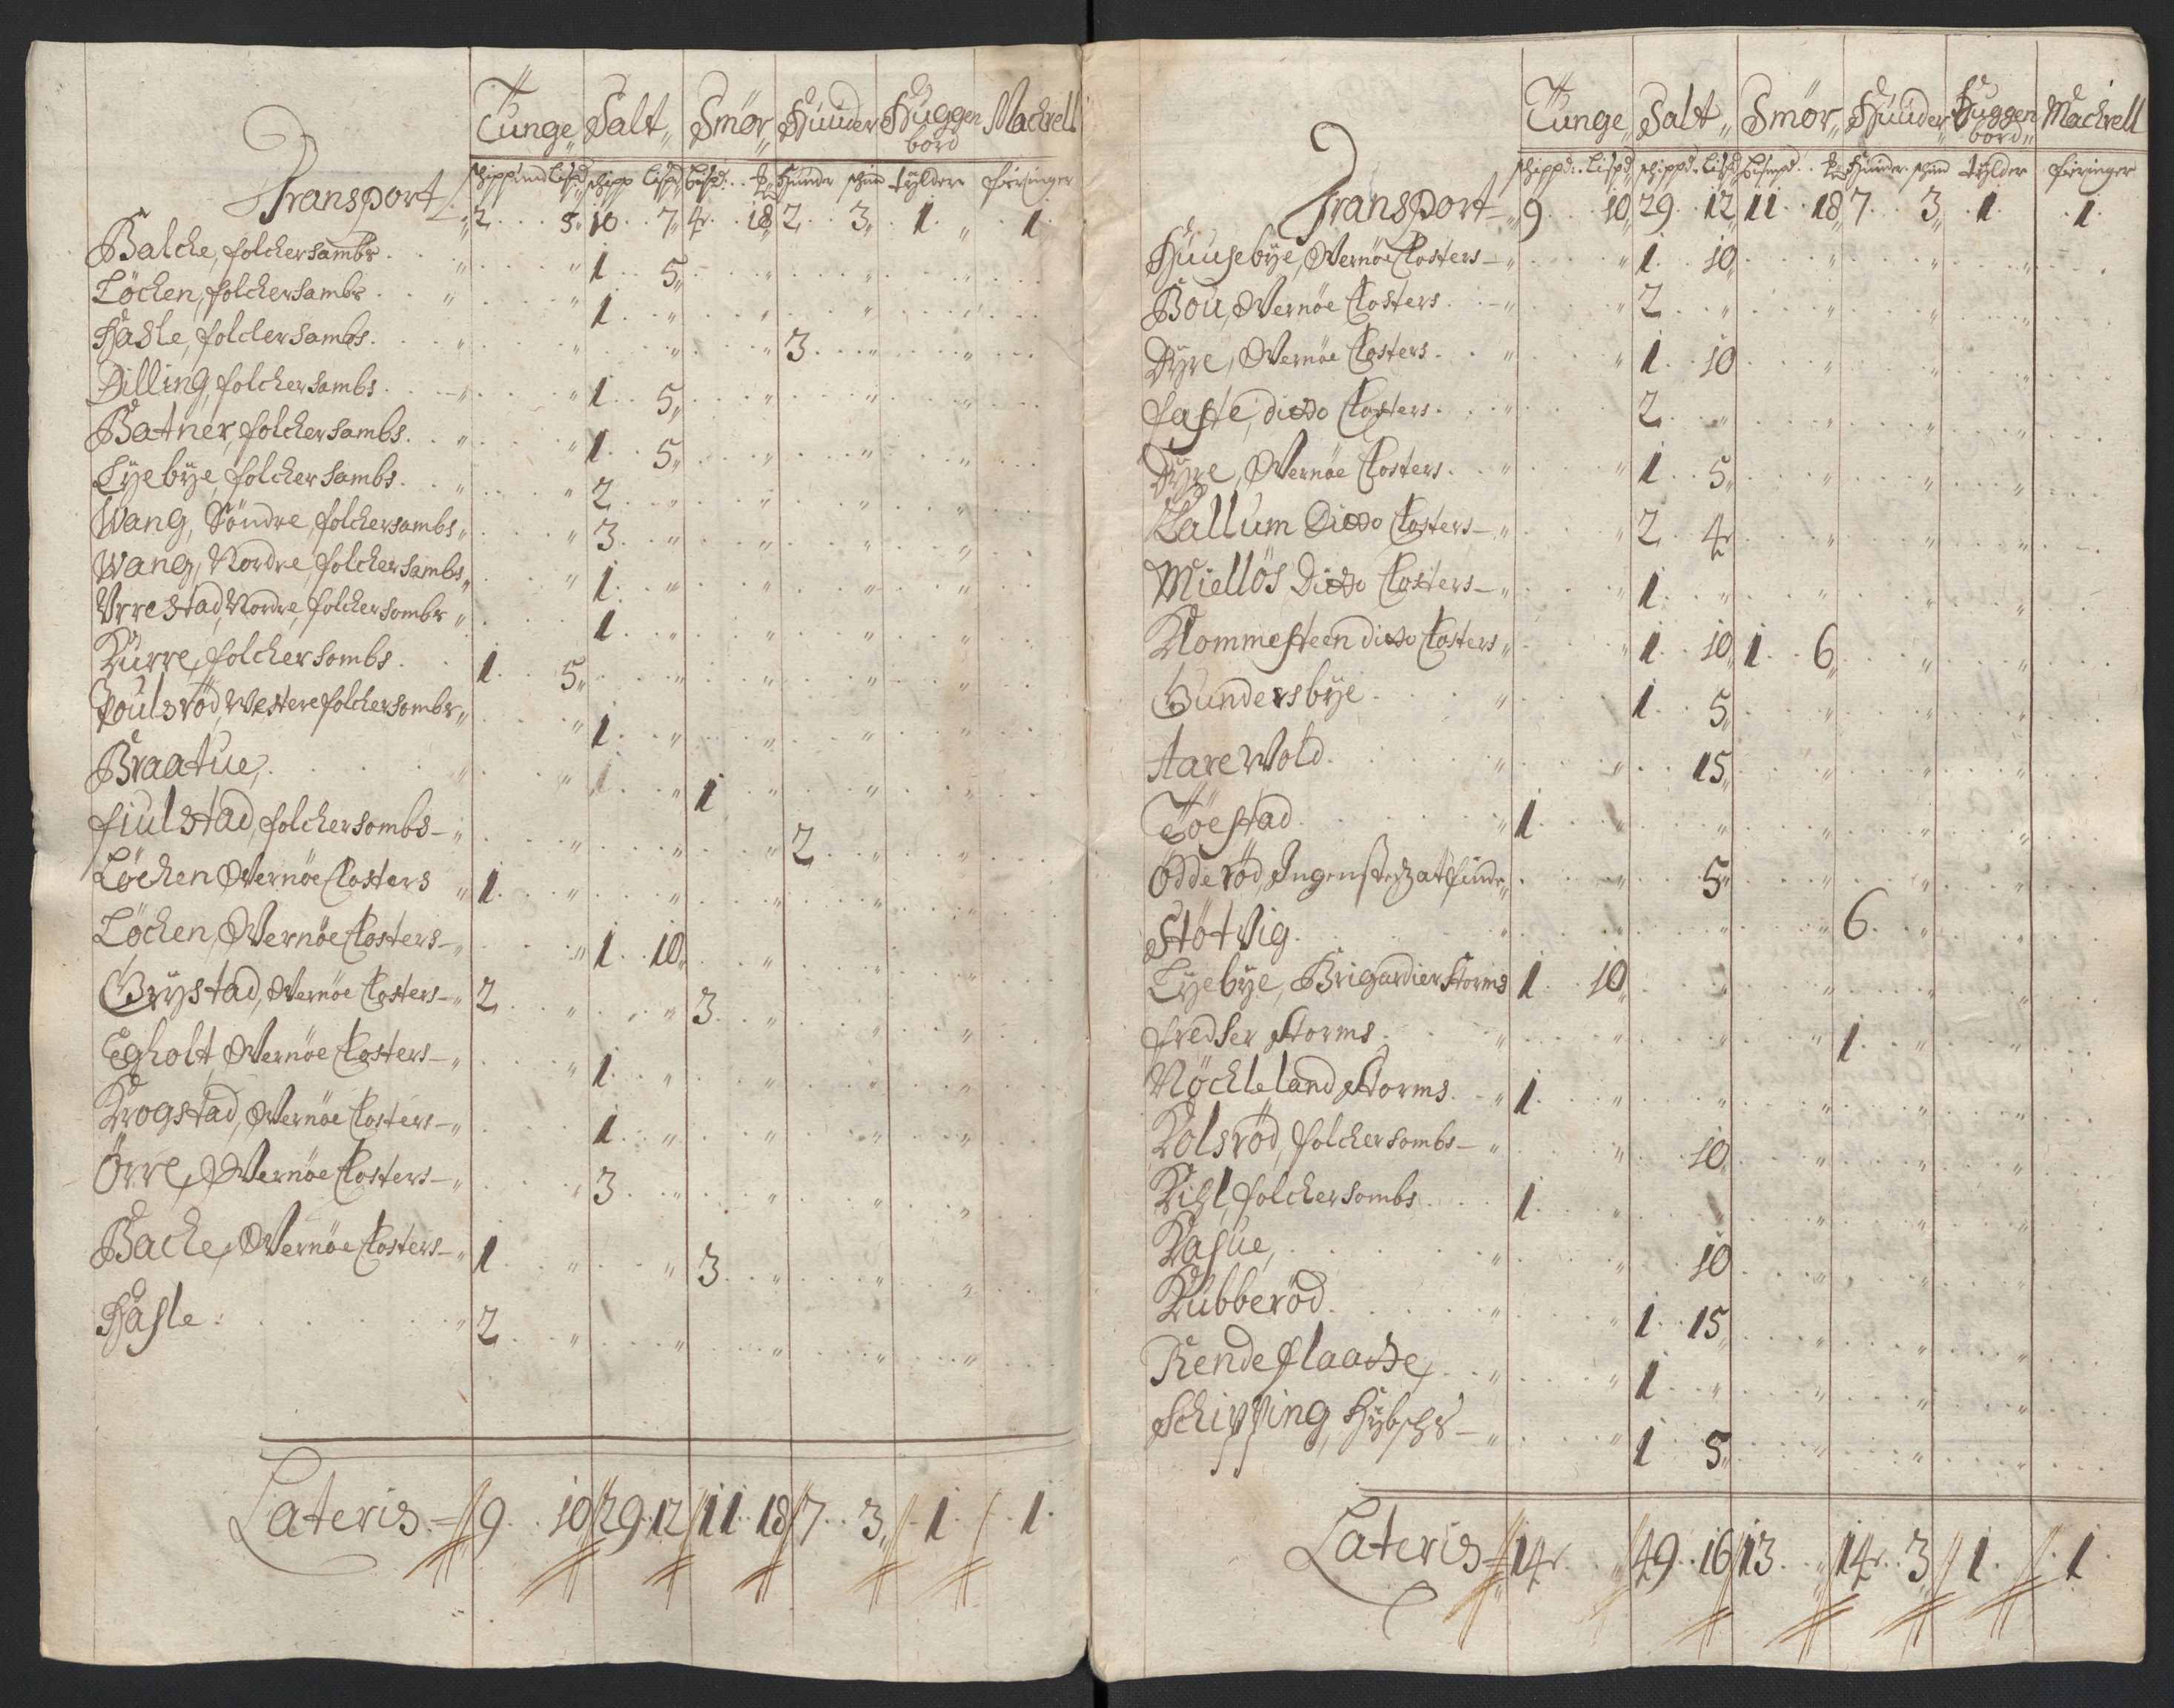 Tunge Salt Smør Huuder Huggen bord Mackrell
Schippund Lispd schipp Lispd Lispd Huuder schind tylder föringer
Transport 2 5 10 7 4 18 2 3 1 1
Balche, folchersambs 1 5
Löchen, folchersambs 1
Hasle, folchersambs 3
Dilling, folchersambs 1 5
Batner, folchersambs 1 5
Lyebye, folchersambs 2
Wang, Söndre, folchersambs 3
Wang, Nordre, folchersambs 1
Urrestad, Nordre, folchersombs 1
Kurre, folchersombs 1 5
Poulsröd, Westere folchersombs 1
Braatue, 1
fiulstad, folchersombs 2
Löchen Wernöe Closters 1
Löchen, Wernöe Closters 1 10
Grystad, Wernöe Closters 2 3
Egholt, Wernöe Closters 1
Krogstad, Wernöe Closters 1
Örre, Wernöe Closters 3
Backe, Wernöe Closters 1 3
Hasle 2
Lateris 9 10 29 12 11 18 7 3 1 1
Tunge Salt Smør Huuder Huggen bord Mackrell
schippd Lispd schippd Lispd Bismpd Huuder schind tylder föringer
Transport 9 10 29 12 11 18 7 3 1 1
Huusebye, Wernöe Closters 1 10
Bou, Wernöe Closters 2
Dyre, Wernöe Closters 1 10
faste, ditto Closters 2
Dyre, Wernöe Closters 1 5
Kallum Ditto Closters 2 4
Miellös Ditto Closters 1
Klommesteen ditto Closters 1 10 1 6
Gundersbye 1 5
Aarewold 15
Töestad 1
Odderöd Ingen at finde 5
Stötvig 6
Lyebye, Brigardier Storms 1 10
fredser Storms 1
Nöckleland Storms 1
Kolsröd, folchersombs 10
Kihl, folchersombs 1
Kasue, 10
Kubberöd 1 15
Rendeflaatte, 1
Schipping, Hybsches 1 5
Lateris 14 49 16 13 14 3 1 1